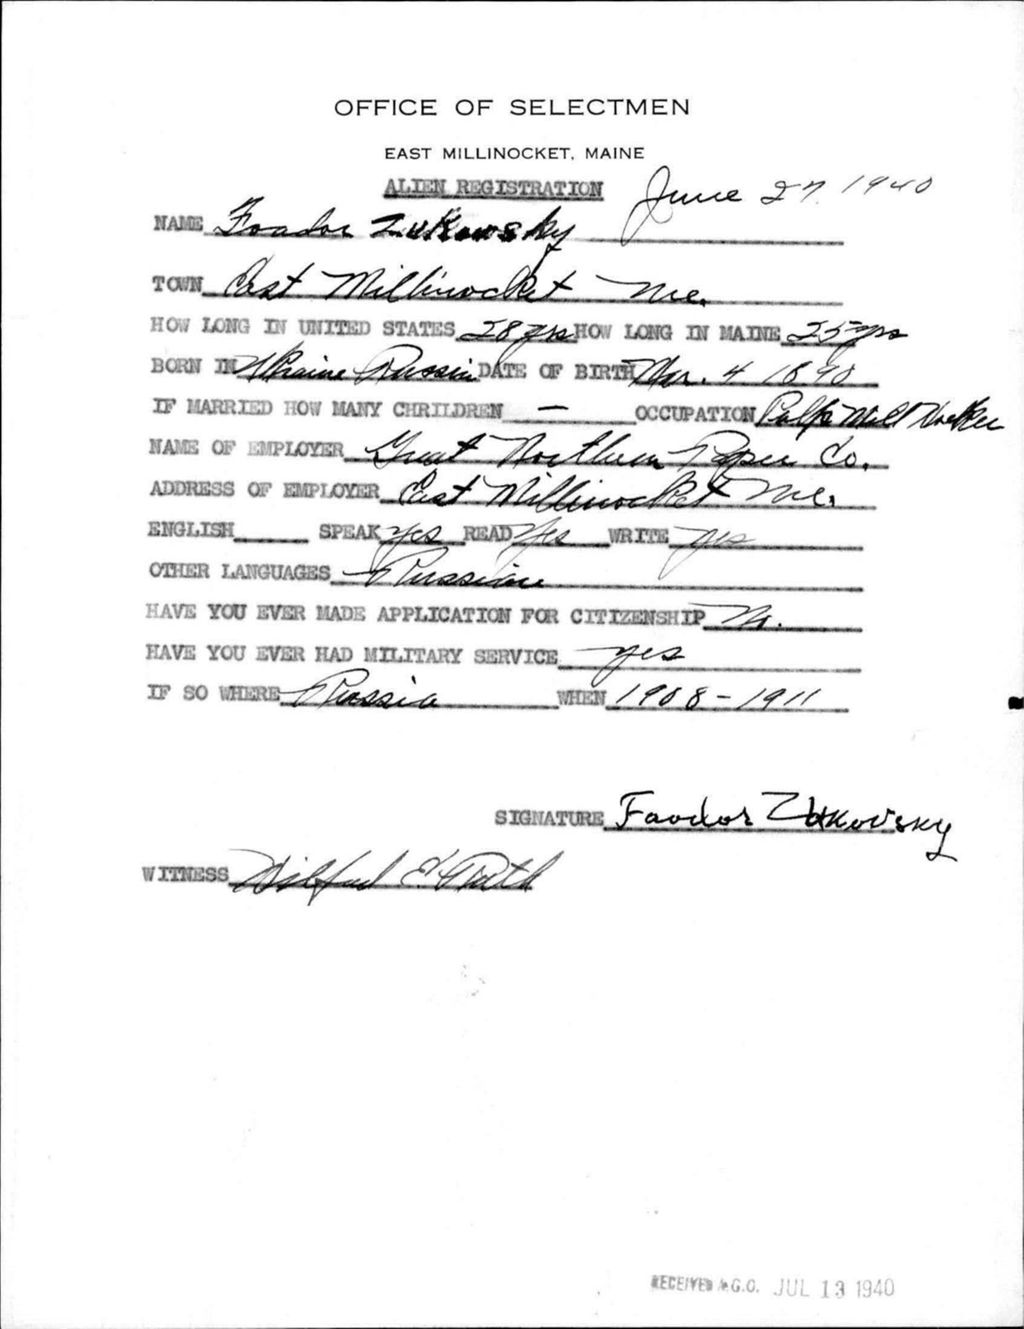 OFFICE OF SELECTMEN
EAST MILLINOCKET, MAINE
ALIEN REGISTRATION June 27, 1940
NAME Foador Zukowsky
TOWN East Millinocket Me.
HOW LONG IN UNITED STATES 28 yrs HOW LONG IN MAINE 25 yrs
BORN IN Ukraine Russia DATE OF BIRTH Mar. 4 1890
IF MARRIED HOW MANY CHRILDREN — OCCUPATION Pulp Mill Worker
NAME OF EMPLOYER Great Northern Paper Co.
ADDRESS OF EMPLOYER East Millinocket Me.
ENGLISH SPEAK yes READ Yes WRITE yes
OTHER LANGUAGES Russian
HAVE YOU EVER MADE APPLICATION FOR CITIZENSHIP No.
HAVE YOU EVER HAD MILITARY SERVICE yes
IF SO WHERE Russia WHEN 1908-1911
SIGNATURE Faodor Zukovsky
WITNESS Wilfred E.
RECEIVED A.G.O. JUL 13 1940